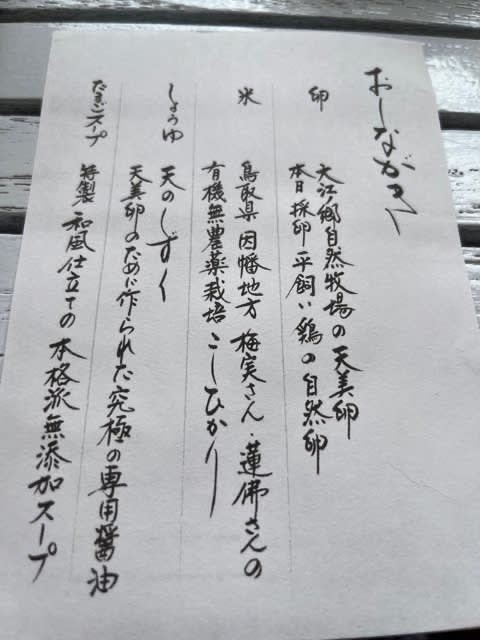 おしながき
卵
大江ノ郷自然牧場の天美卵
本日採卵平飼い鶏の自然卵
米
鳥取県因幡地方 梅実さん・蓮佛さんの
有機無農薬栽培 こしひかり
しょうゆ
天のしずく
天美卵のために作られた究極の専用醤油
たまごスープ
特製 和風仕立ての本格派無添加スープ